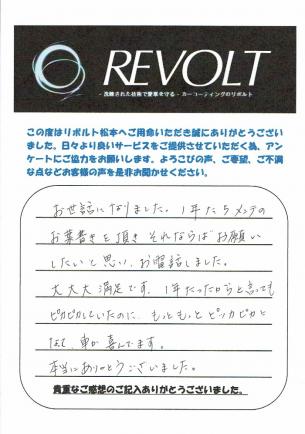 REVOLT
- 洗練された技術で愛車を守る - カーコーティングのリボルト
この度はリボルト松本へご用命いただき誠にありがとうござい
ました。日々より良いサービスをご提供させていただく為、アン
ケートにご協力をお願いします。よろこびの声、ご要望、ご不満
な点などお客様の声を是非お聞かせください。
お世話になりました。1年たちメンテの
お葉書きを頂き それならば お願い
したいと思い、お電話しました。
大大大 満足です。1年たったからと言っても
ピカピカしていたのに、もっともっと ピッカピカと
なて、車が喜んでます。
本当にありがとうございました。
貴重なご感想のご記入ありがとうございました。